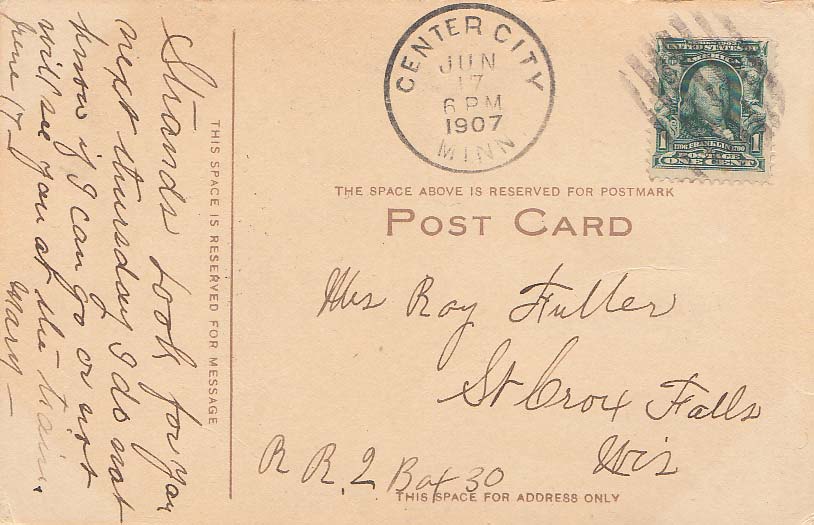 Strands look for you
next thursday I do not
know if I can go or not
will see you at the train.
June 17- Mary-
THIS SPACE IS RESERVED FOR MESSAGE
CENTER CITY
JUN
17
6 PM
1907
MINN.
SERIES 1902
UNITED STATES OF
AMERICA
1706 FRANKLIN 1790
1 POSTAGE 1
ONE CENT
THE SPACE ABOVE IS RESERVED FOR POSTMARK
POST CARD
Mrs Roy Fuller
St Croix Falls
Wis
R R. 2 Box 30
THIS SPACE FOR ADDRESS ONLY